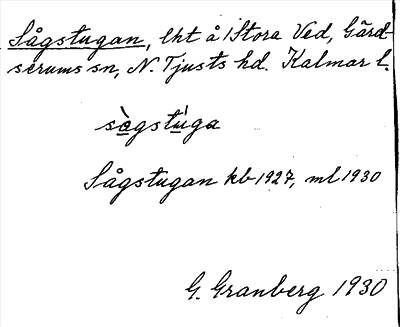 Sågstugan, lht å 1 Stora Ved, Gärd-
serums sn, N. Tjusts hd. Kalmar l.
sàgstúga
Sågstugan kb 1927, ml 1930
G. Granberg 1930